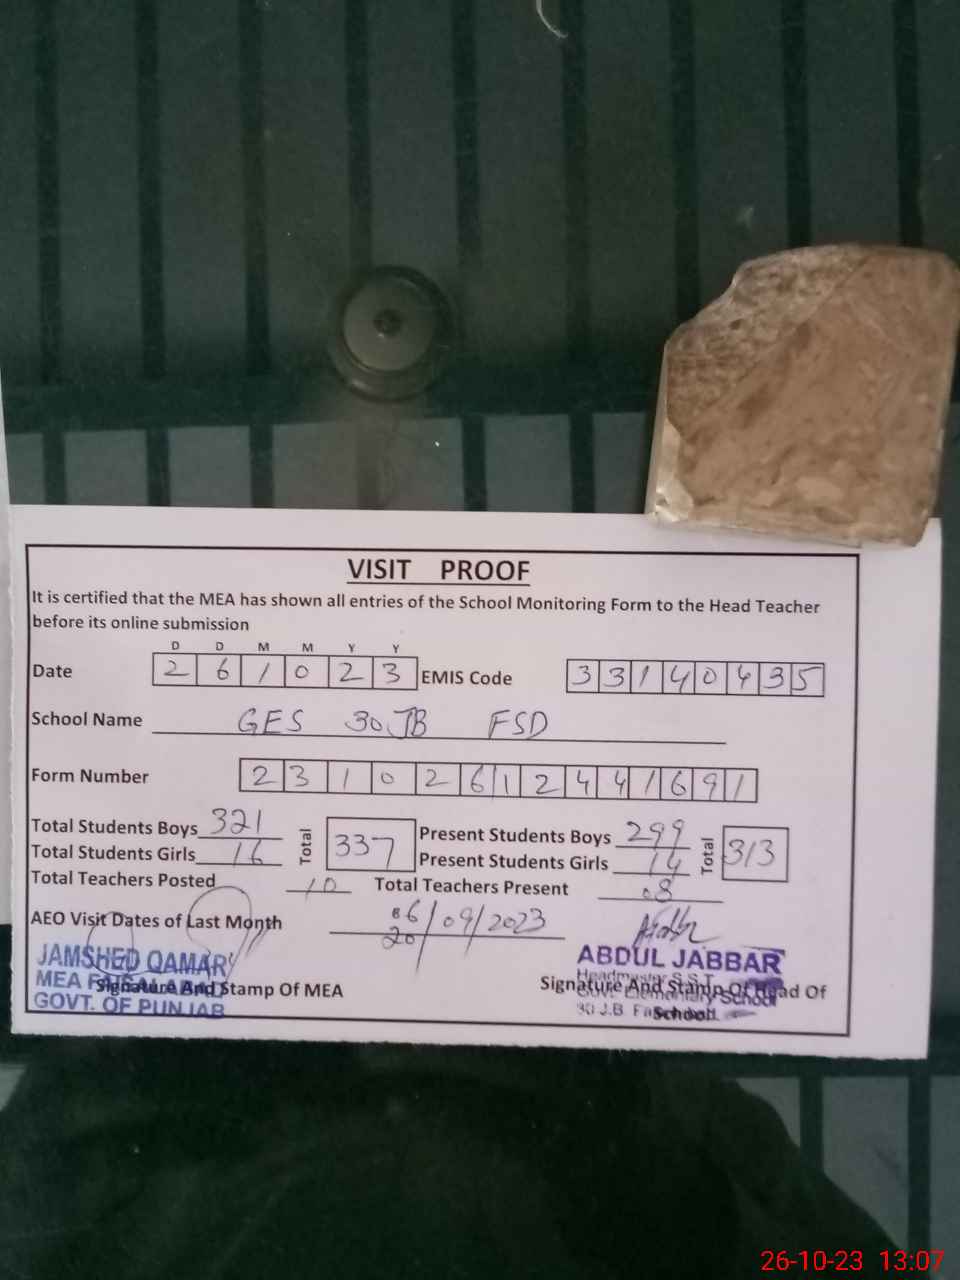 VISIT PROOF
It is certified that the MEA has shown all entries of the School Monitoring Form to the Head Teacher
before its online submission
D D M M Y Y
Date 2 6 1 0 2 3 EMIS Code 3 3 1 4 0 4 3 5
School Name GES 30 JB FSD
Form Number 2 3 1 0 2 6 1 2 4 4 1 6 9 1
Total Students Boys 321 Total 337 Present Students Boys 299 Total 313
Total Students Girls 16 Present Students Girls 14
Total Teachers Posted 10 Total Teachers Present 08
AEO Visit Dates of Last Month 06/09/2023
20
JAMSHED QAMAR
MEA FAISALABAD
GOVT. OF PUNJAB
Signature And Stamp Of MEA
ABDUL JABBAR
Headmaster S.S.T
Govt. Elementary School
30 J.B.
Signature And Stamp Of Head Of
School
26-10-23 13:07